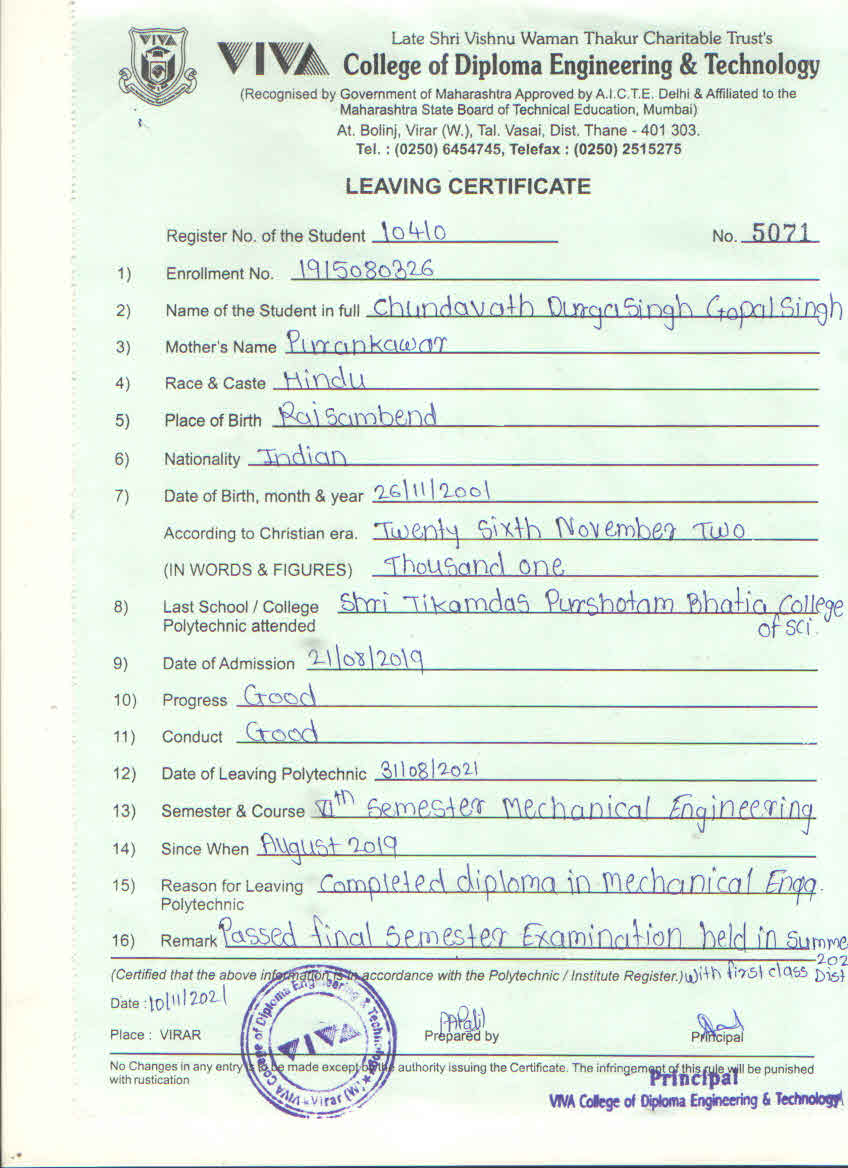 VIVA
VIVA
Late Shri Vishnu Waman Thakur Charitable Trust's
College of Diploma Engineering & Technology
(Recognised by Government of Maharashtra Approved by A.I.C.T.E. Delhi & Affiliated to the
Maharashtra State Board of Technical Education, Mumbai)
At. Bolinj, Virar (W.), Tal. Vasai, Dist. Thane - 401 303.
Tel. : (0250) 6454745, Telefax : (0250) 2515275
LEAVING CERTIFICATE
Register No. of the Student 10410 No. 5071
1) Enrollment No. 1915080326
2) Name of the Student in full Chundavath Durgasingh Gopalsingh
3) Mother's Name Purrankawar
4) Race & Caste Hindu
5) Place of Birth Raisambend
6) Nationality Indian
7) Date of Birth, month & year 26/11/2001
According to Christian era. Twenty Sixth November Two
(IN WORDS & FIGURES) Thousand one
8) Last School / College Shri Tikamdas Purrshotam Bhatia College
Polytechnic attended of sci.
9) Date of Admission 21/08/2019
10) Progress Good
11) Conduct Good
12) Date of Leaving Polytechnic 31/08/2021
13) Semester & Course VIth Semester Mechanical Engineering
14) Since When August 2019
15) Reason for Leaving Completed diploma in mechanical Engg.
Polytechnic
16) Remark Passed final semester Examination held in summe
202
(Certified that the above information is in accordance with the Polytechnic / Institute Register.) with first class Dist
Date : 10/11/2021
Place : VIRAR Prepared by Principal
VIVA College of Diploma Engineering & Technology
VIVA
Virar (W.)
No Changes in any entry is to be made except by the authority issuing the Certificate. The infringement of this rule will be punished
with rustication
Principal
VIVA College of Diploma Engineering & Technology